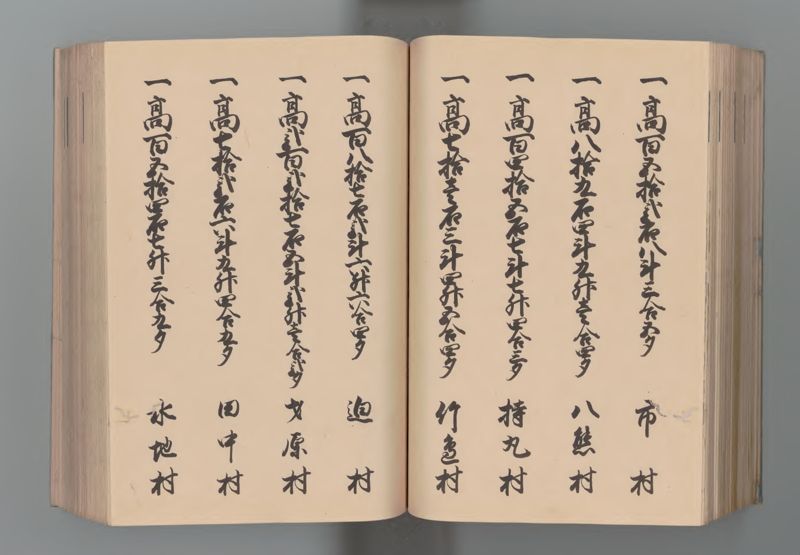 一高百五拾弐石八斗三合五夕 市村
一高八拾九石四斗九升壱合四夕 八熊村
一高百四拾五石七斗七升四合三夕 持丸村
一高七拾壱石三斗四升五合四夕 竹邉村
一高百八拾七石弐斗六升六合四夕 迫村
一高弐百弐拾七石五斗弐升壱合弐夕 才原村
一高七拾弐石六斗九升四合九夕 田中村
一高百五拾四石七升三合九夕 水地村